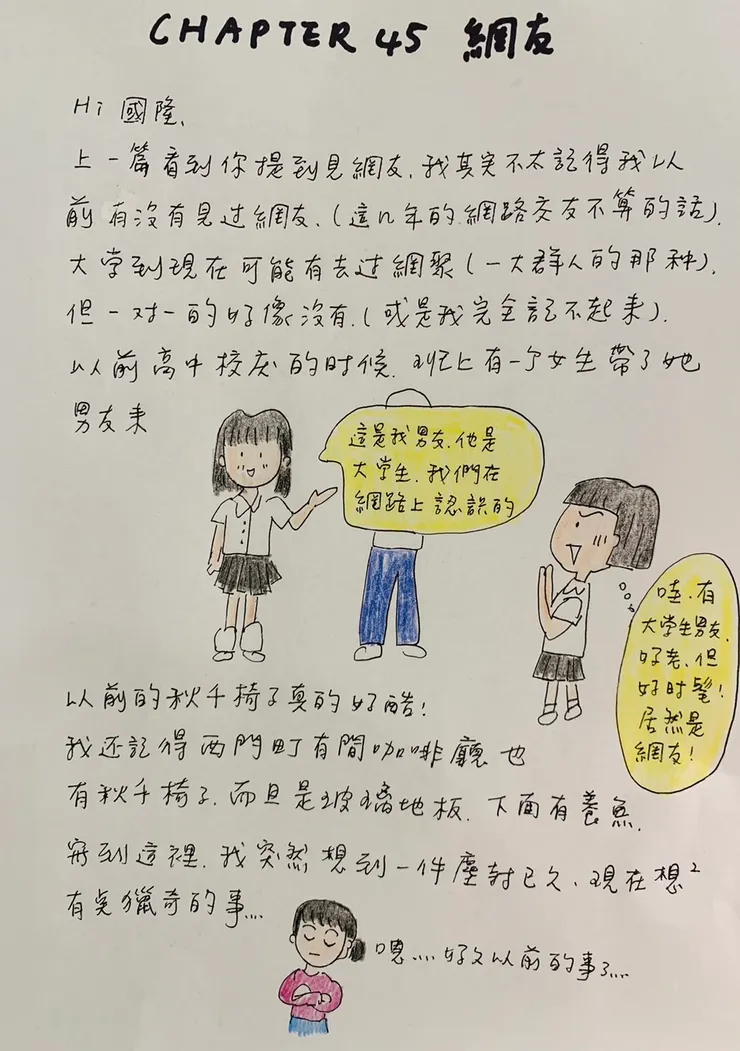 CHAPTER 45 網友
Hi 國隆、
上一篇看到你提到見網友,我其实不太記得我以
前有沒有見过網友、(這几年的網路交友不算的話).
大学到現在可能有去过網聚(一大群人的那种).
但一对一的好像沒有.(或是我完全記不起来).
以前高中校庆的时候,班上有一个女生帶了她
男友来
這是我男友.他是
大学生.我們在
網路上認識的
哇.有
大学生男友.
好老、但
好时髦!
居然是
網友!
以前的秋千椅子真的好酷!
我还記得西門町有間咖啡廳也
有秋千椅子.而且是玻璃地板.下面有養魚.
寫到這裡.我突然想到一件塵封已久、現在想²
有点獵奇的事....
嗯....好久以前的事了....